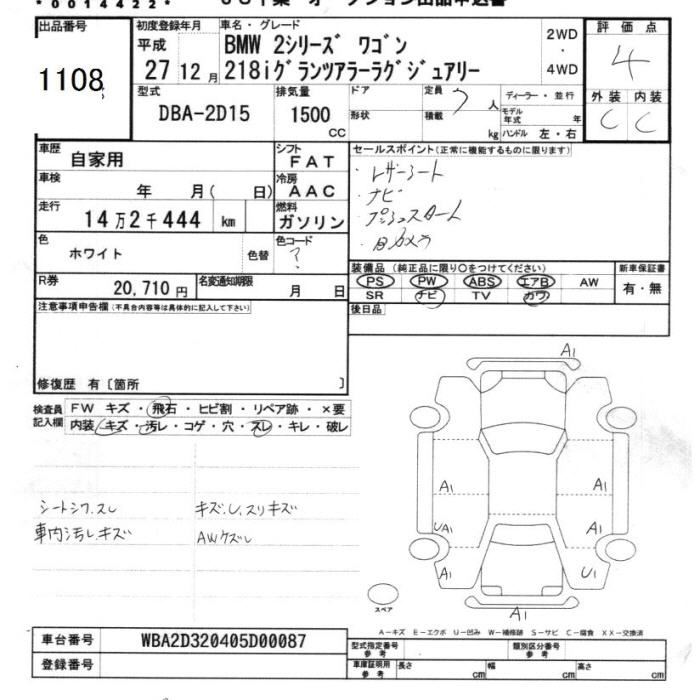 *0014422*
出品番号
1108
初度登録年月
平成
27 12 月
車名・グレード
BMW 2シリーズ ワゴン
218iグランツアラーラグジュアリー
2WD
・
4WD
評価点
4
外装 内装
C C
型式
DBA-2D15
排気量
1500
CC
ドア
形状
定員 7 人
積載 kg
ディーラー・並行
モデル年式 年
ハンドル 左・右
車歴
自家用
シフト
FAT
車検
年 月( 日)
冷房
AAC
走行
14万2千444 km
燃料
ガソリン
色
ホワイト
色替
色コード
?
R券
20,710 円
名変通知期限
月 日
セールスポイント(正常に機能するものに限ります)
・レザーシート
・ナビ
・プッシュスタート
・Bカメラ
装備品(純正品に限り○をつけてください)
PS PW ABS エアB AW
SR ナビ TV カワ
新車保証書
有・無
後日品
注意事項申告欄(不具合内容等は具体的に記入して下さい)
修復歴 有〔箇所 〕
検査員記入欄
FW キズ・飛石・ヒビ割・リペア跡・×要
内装 キズ・汚レ・コゲ・穴・スレ・キレ・破レ
シートシワ、スレ
車内汚レ、キズ
キズ、U、スリキズ
AWケズレ
A1
A1
A1
UA1
A1
A1
U1
A1
スペア
A-キズ E-エクボ U-凹み W-補修跡 S-サビ C-腐食 XX-交換済
車台番号
WBA2D320405D00087
登録番号
型式指定番号
参考
類別区分番号
参考
車庫証明用
参考
長さ cm
幅 cm
高さ cm